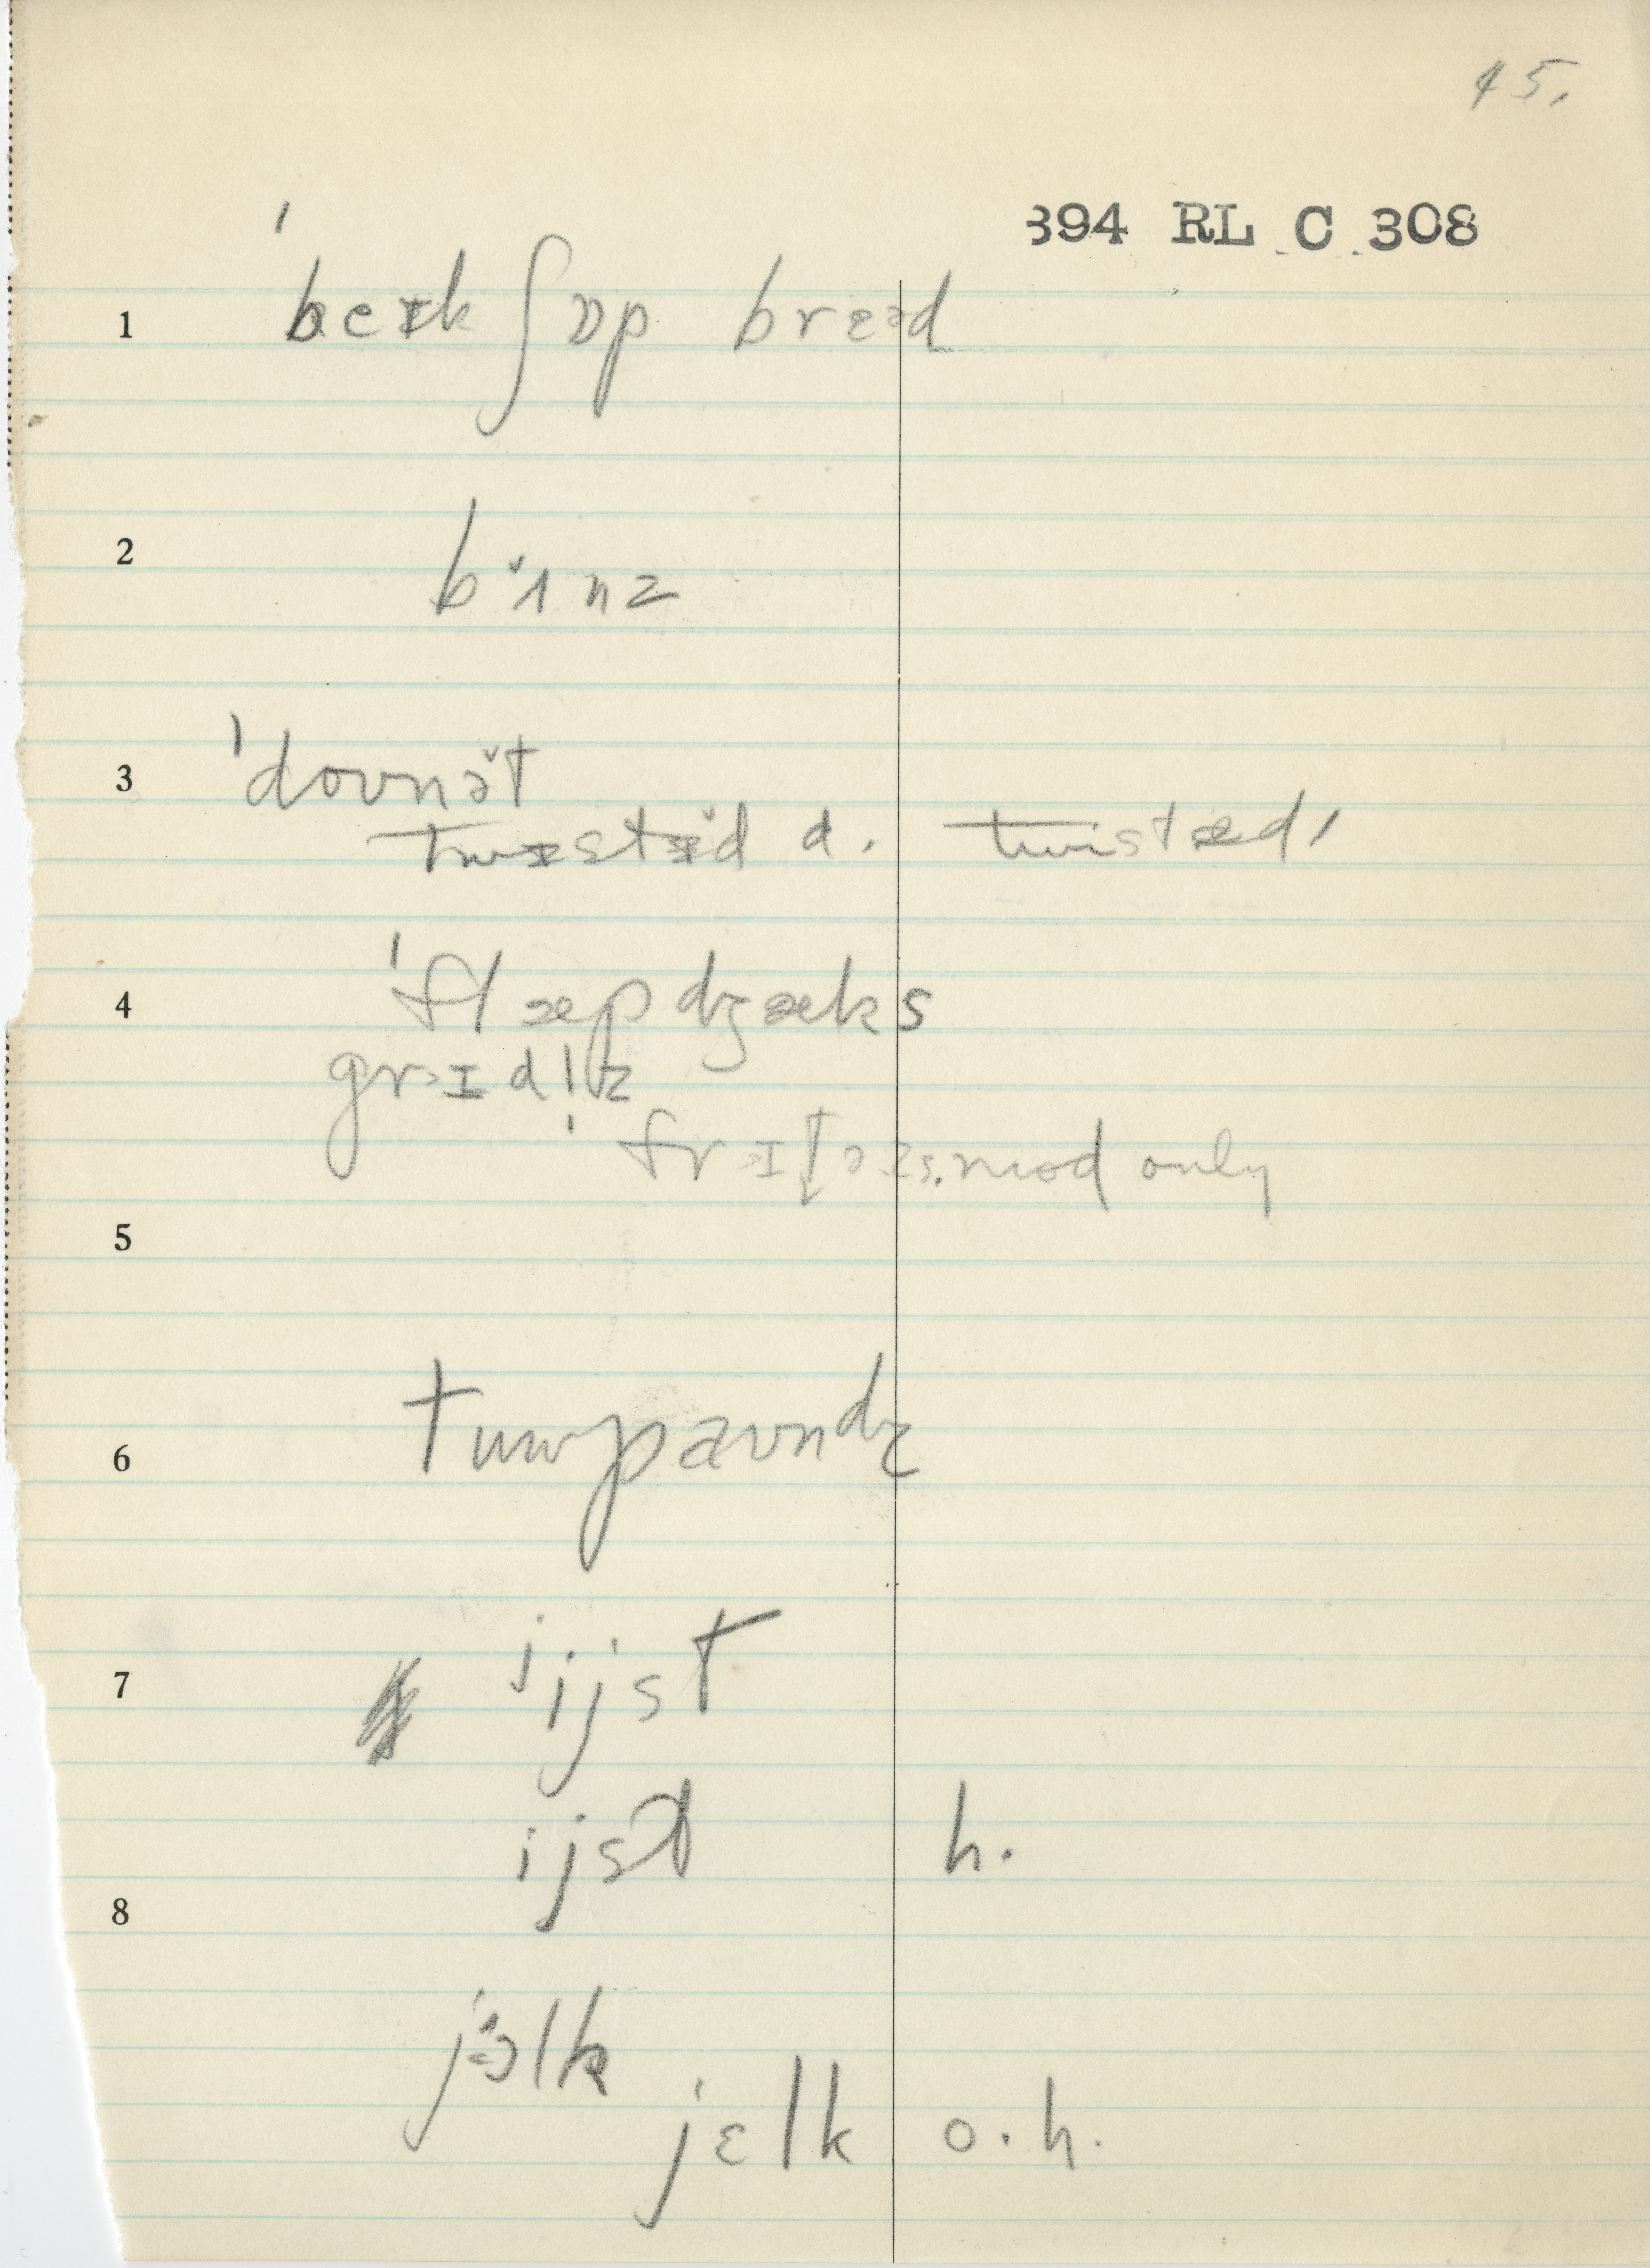 45.
394 RL C 308
1 ˈbeɪkʃɒp brɛəd
2 bɜ̆ɪnz
3 ˈdoʊnə̆t
twɪstə̆d d. twistəd,
4 ˈflæpdʒæks
grɪdlz
frɪtəzs. mod only
5
6 tuwpaʊndz
7 jijst
ijst h.
8
jɜlk
jɛlk o.h.